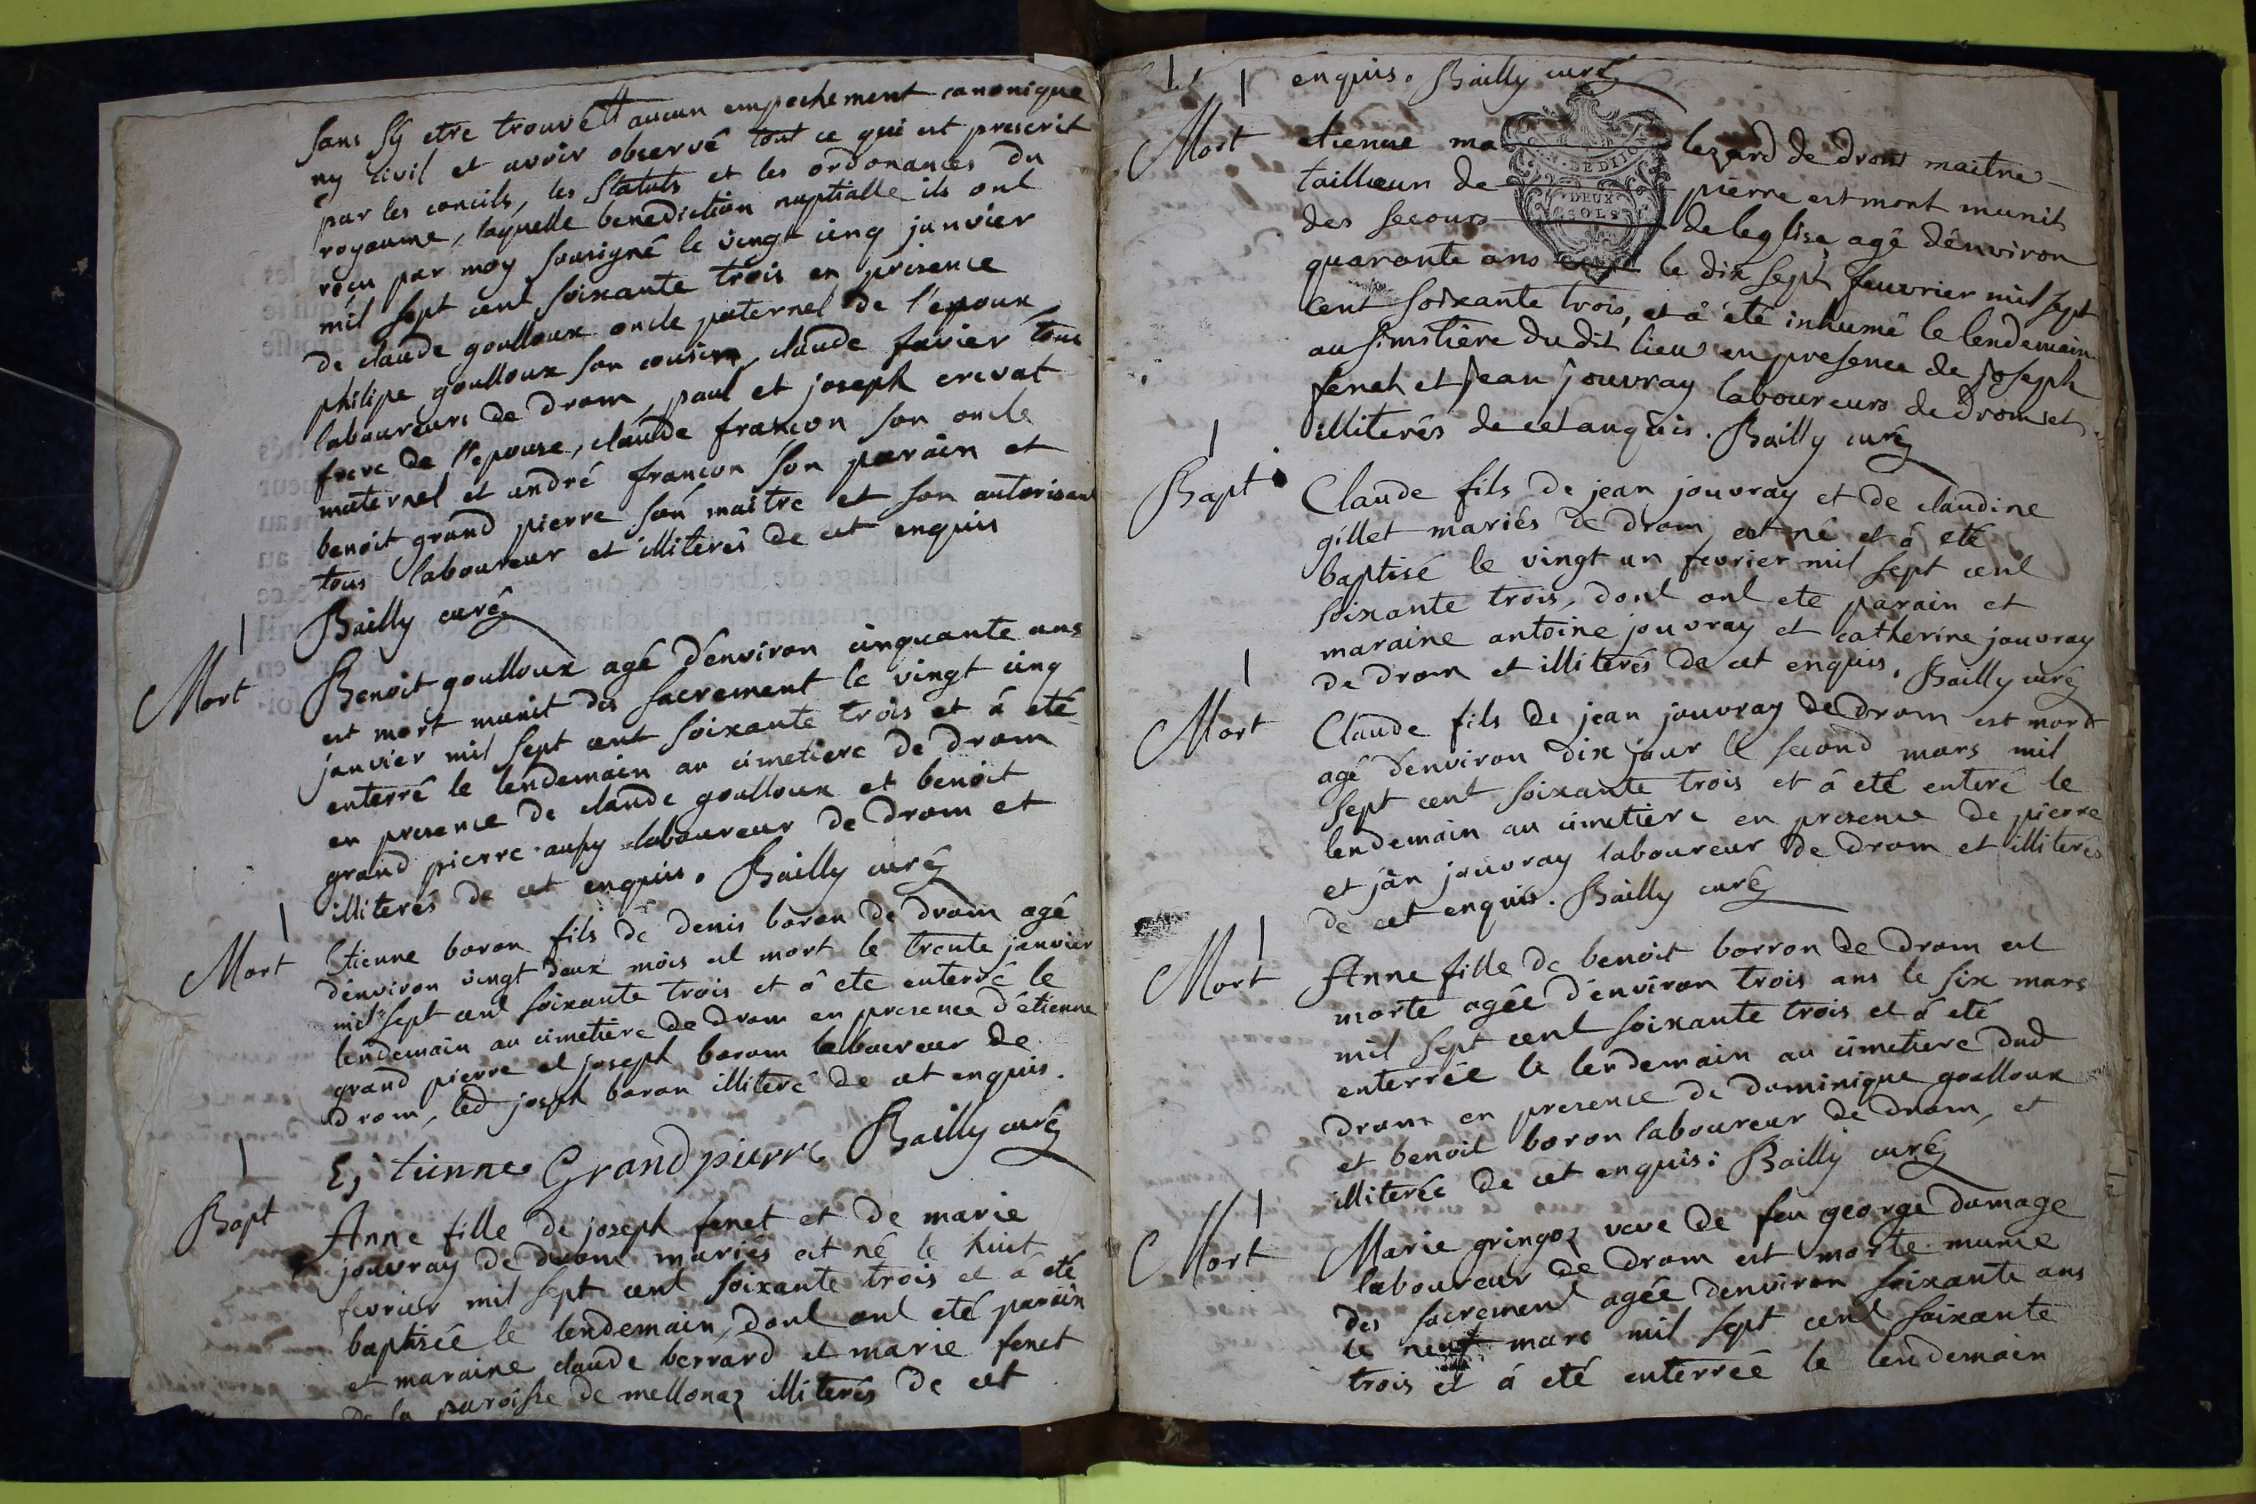 sans sÿ etre trouvé aucun empechement canonique
ny civil et avoir observé tout ce qui est prescrit
par les concils, les statuts et les ordonances du
royaume, laquelle benediction nuptialle ils ont
recu par moy sousigné le vingt cinq janvier
mil sept cent soixante trois en presence
de claude goulloux oncle paternel de l'epoux
philipe goulloux son cousin, claude favier tous
laboureurs de drom, paul et joseph crevat
frere de l'epouse, claude françon son oncle
maternel et andré françon son parain et
benoit grand pierre son maitre et son autorisant
tous laboureur et illiterés de cet enquis
Bailly curé
Mort
Benoit goulloux agé d'environ cinquante ans
est mort munit des sacrement le vingt cinq
janvier mil sept cent soixante trois et á eté
enterré le lendemain au cimetiere de drom
en presence de claude goulloux et benoit
grand pierre laboureur de drom et
illiterés de cet enquis. Bailly curé
Mort
Etienne boron fils de denis boron de drom agé
d'environ vingt deux mois est mort le trente janvier
mil sept cent soixante trois et á ete enterré le
lendemain au cimetiere de drom en presence d'étienne
grand pierre et joseph borom laboureur de
drom, led joseph boron illiteré de cet enquis.
Etienne Grandpierre Bailly curé
Bapt
Anne fille de joseph fenet et de marie
jouvray de drom mariés est né le huit
fevrier mil sept cent soixante trois et a eté
baptisée le lendemain, dont ont eté parain
et maraine claude berrard et marie fenet
de la paroisse de mellonaz illiterés de cet
enquis. Bailly curé
Mort
etienne ma lezard de drom maitre
DE DIJON
tailleur de pierre est mort munit
DEUX SOLS
des secours de leglise, agé d'environ
quarante ans le dix sept feuvrier mil sept
cent soixante trois, et á été inhumé le lendemain
au simstière du dit lieu en presence de joseph
fenet et jean jouvray laboureurs de drom et
illiterés de cet anquis. Bailly curé
Bapt
Claude fils de jean jouvray et de claudine
gillet mariés de drom, est né et á eté
baptisé le vingt un fevrier mil sept cent
soixante trois, dont ont ete parain et
maraine antoine jouvray et catherine jouvray
de drom et illiterés de cet enquis. Bailly curé
Mort
Claude fils de jean jouvray de drom est mort
agé d'environ dix jour le second mars mil
sept cent soixante trois et á eté enteré le
lendemain au cimetiere en presence de pierre
et jan jouvray laboureur de drom et illiterés
de cet enquis. Bailly curé
Mort
Anne fille de benoit borron de drom est
morte agée d'environ trois ans le six mars
mil sept cent soixante trois et á eté
enterrée le lendemain au cimetiere dud
drom en presence de dominique goulloux
et benoit boron laboureur de drom, et
illiterée de cet enquis: Bailly curé
Mort
Marie gringoz veve de feu george damage
laboureur de drom est morte munie
des sacrement agée d'environ soixante ans
le neuf mars mil sept cent soixante
trois et á eté enterrée le lendemain